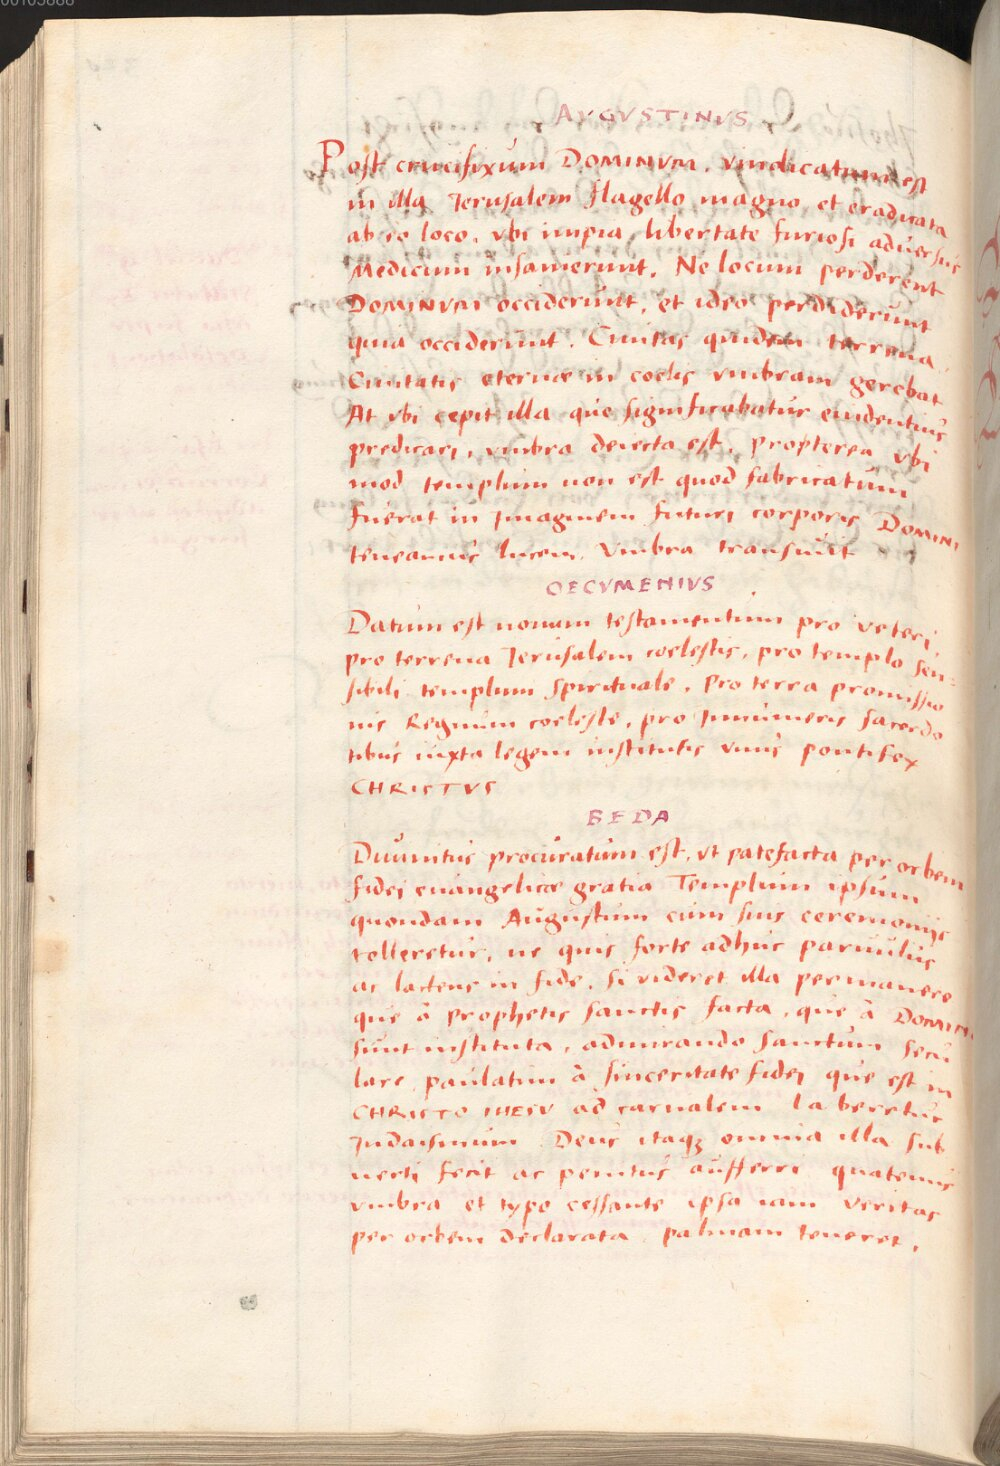 00103888
AVGVSTINVS
Post crucifixum DOMINVM, vindicatum est
in illa Jerusalem flagello magno et eradicata
ab eo loco, vbi impia libertate furiosi aduersus
Medicum insanierunt, Ne locum perderent
DOMINVM occiderunt, et ideo perdiderunt
quia occiderunt. Ciuitas quidem terrena
Ciuitatis eternæ in coelis vmbram gerebat
At vbi cepit illa que significabatur euidentius
predicari, vmbra deiecta est. propterea vbi
mod templum non est quod fabricatum
fuerat in Imaginem futuri corporis DOMINI
teneamus lucem, Vmbra transiuit
OECVMENIVS
Datum est nouum testamentum pro veteri,
pro terrena Jerusalem coelestis, pro templo sen-
sibili templum spirituale, Pro terra promissio
nis Regnum coeleste, pro Innumeris sacerdo
tibus iuxta legem institutis vnus pontifex
CHRISTVS
BEDA
Diuinitus procuratum est, vt patefacta per orbem
fidei euangelicæ gratia Templum ipsum
quondam Augustum cum suis ceremonijs
tolleretur, ne quis forte adhuc paruulus
ac lactens in fide, si videret illa permanere
que à prophetis sanctis facta, que à DOMINO
sunt instituta, admirando sanctum secu
lare paulatim à sinceritate fidei que est in
CHRISTO IHESV ad carnalem laberetur
Judaismum Deus itaqz omnia illa sub
uerti fecit ac penitus aufferri quatenus
vmbra et typo cessante ipsa iam veritas
per orbem declarata palmam teneret.